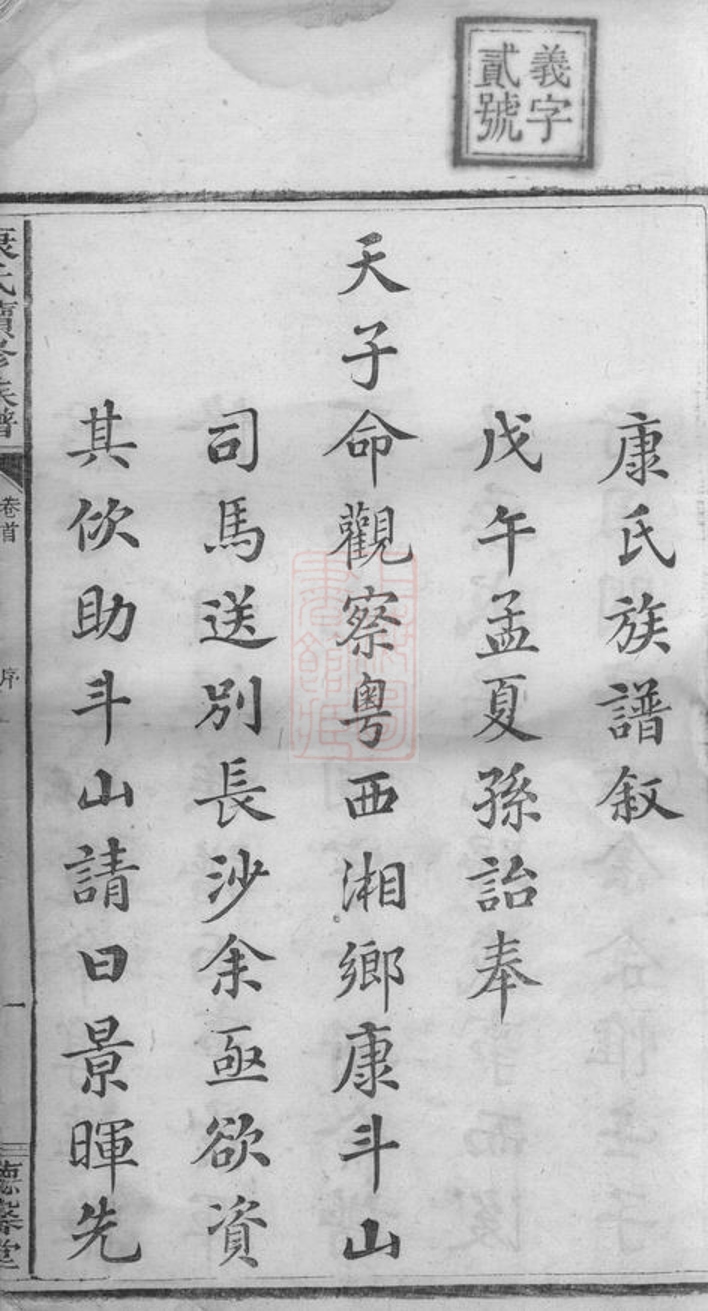 義字
貳號
康氏族譜叙
戊午孟夏孫詒奉
天子命觀察粤西湘鄉康斗山
司馬送別長沙余亟欲資
其佽助斗山請曰景暉先
康氏續修族譜
卷首
序
一